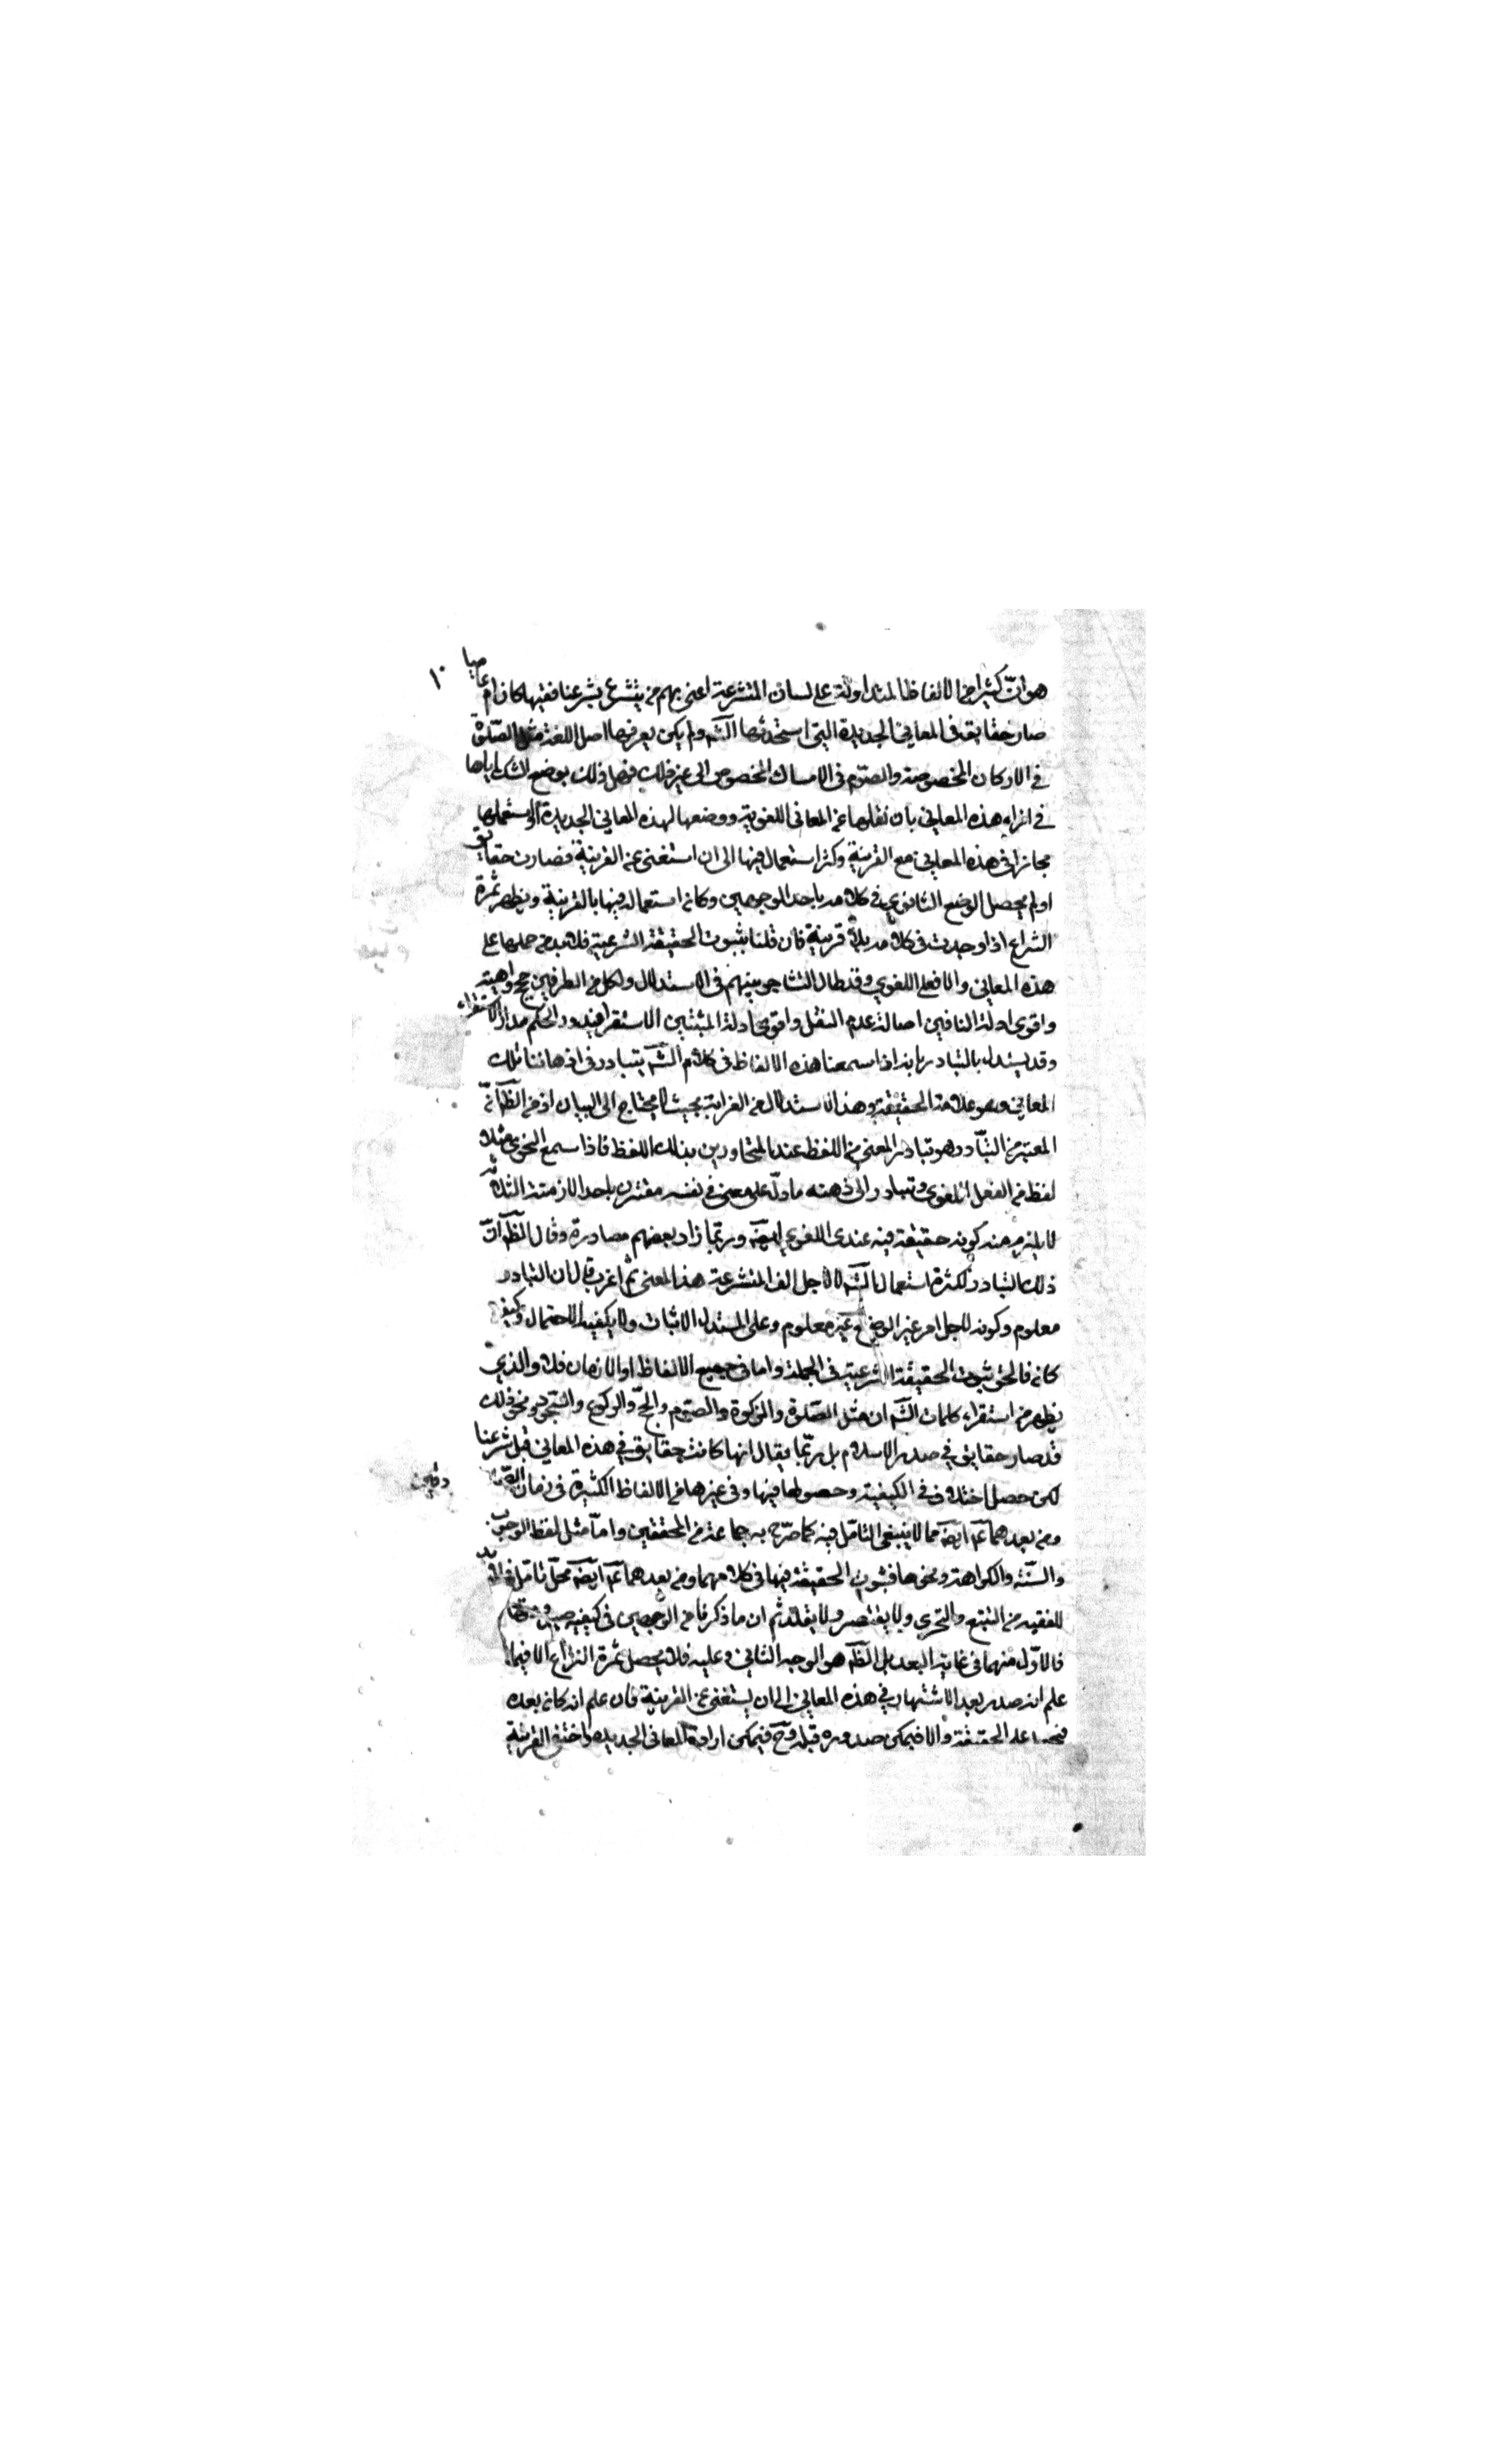 ١٠
هو ان كثيرا من الالفاظ المتداولة على لسان المتشرعة اعنى بهم من يتشرع بشرعنا فقيها كان ام عاميا
صار حقايق فى المعانى الجديدة التى استحدثها الش‍ ولم يكن يعرفها اهل اللغة مثل الصّلوة
فى الاركان المخصوصة والصّوم فى الامساك المخصوص الى غير ذلك فهل ذلك بوضع الش‍ اياها
فى ازاء هذه المعانى بان نقلها عن المعانى اللغوية ووضعها لهذه المعانى الجديدة او استعملها
مجازا فى هذه المعانى مع القرينة وكثر استعمالها فيها الى ان استغنى عن القرينة فصارت حقايق
او لم يحصل الوضع الثانوى فى كلامه باحد الوجهين وكان استعماله فيها بالقرينة ويظهر ثمرة
النزاع اذا وجدت فى كلامه بلا قرينة فان قلنا بثبوت الحقيقة الشرعية فلا بد من حملها على
هذه المعانى والا فعلى اللغوى وقد طال التشاجر بينهم فى الاستدلال ولكل من الطرفين حجج واهية
واقوى ادلة النافين اصالة عدم النقل واقوى ادلة المثبتين الاستقراء فيدور الحكم مدار الاستقراء
وقد يستدل بالتبادر بانه اذا سمعنا هذه الالفاظ فى كلام الش‍ يتبادر فى اذهاننا تلك
المعانى وهو علامة الحقيقة وهذا الاستدلال من الغرابة بحيث لا يحتاج الى البيان اذ من الظ‍ ان
المعتبر من التبادر هو تبادر المعنى من اللفظ عند المتحاورين بذلك اللفظ فاذا سمع النحوى مثلا
لفظ من الفعل اللغوى وتبادر الى ذهنه ما دلّ على معنى فى نفسه مقترن باحد الازمنة الثلاثة
لا يلزم منه كونه حقيقة فيه عند اللغوى ايض‍ وربّما زاد بعضهم مصادرة وقال الظ‍ ان
ذلك التبادر لكثرة استعمال الش‍ لا لاجل الف المتشرعة هذا المعنى ثم اغرب قال ان التبادر
معلوم وكونه لاجل امر غير الوضع غير معلوم وعلى المستدل الاثبات ولا يكفيه الاحتمال وكيف
كان فالحق ثبوت الحقيقة الشرعية فى الجملة واما فى جميع الالفاظ او الازمان فلا والذى
يظهر من استقراء كلمات الش‍ ان مثل الصّلوة والزكوة والصّوم والحجّ والركوع والسّجود ونحو ذلك
قد صار حقايق فى صدر الاسلام بل ربّما يقال انها كانت حقايق فى هذه المعانى قبل شرعنا
لكن حصل اختلاف فى الكيفية وحصولها فيها وفى غيرها من الالفاظ الكثيرة فى زمان الص‍ادقين
ومن بعدهما ع‍ ايض‍ مما لا ينبغى التامّل فيه كما صرّح به جماعة من المحققين وامّا مثل لفظ الوجوب
والسّنّة والكراهة ونحوها فثبوت الحقيقة فيها فى كلامهما ومن بعدهما ع‍ ايض‍ محلّ تامّل فلا بدّ
للفقيه من التتبع والتحرى ولا يقتصر ولا يقلّد ثم ان ما ذكرنا من الوجهين فى كيفية صيرورتها حقايق
فالاوّل منهما فى غاية البعد بل الظ‍ هو الوجه الثانى وعليه فلا يحصل ثمرة النزاع الا فيما
علم انه صدر بعد الاشتهار فى هذه المعانى الى ان يستغنى عن القرينة فان علم انه كان بعده
فنحمله على الحقيقة والا فيمكن صدوره قبله وح‍ فيمكن ارادة المعانى الجديدة واختفى القرينة